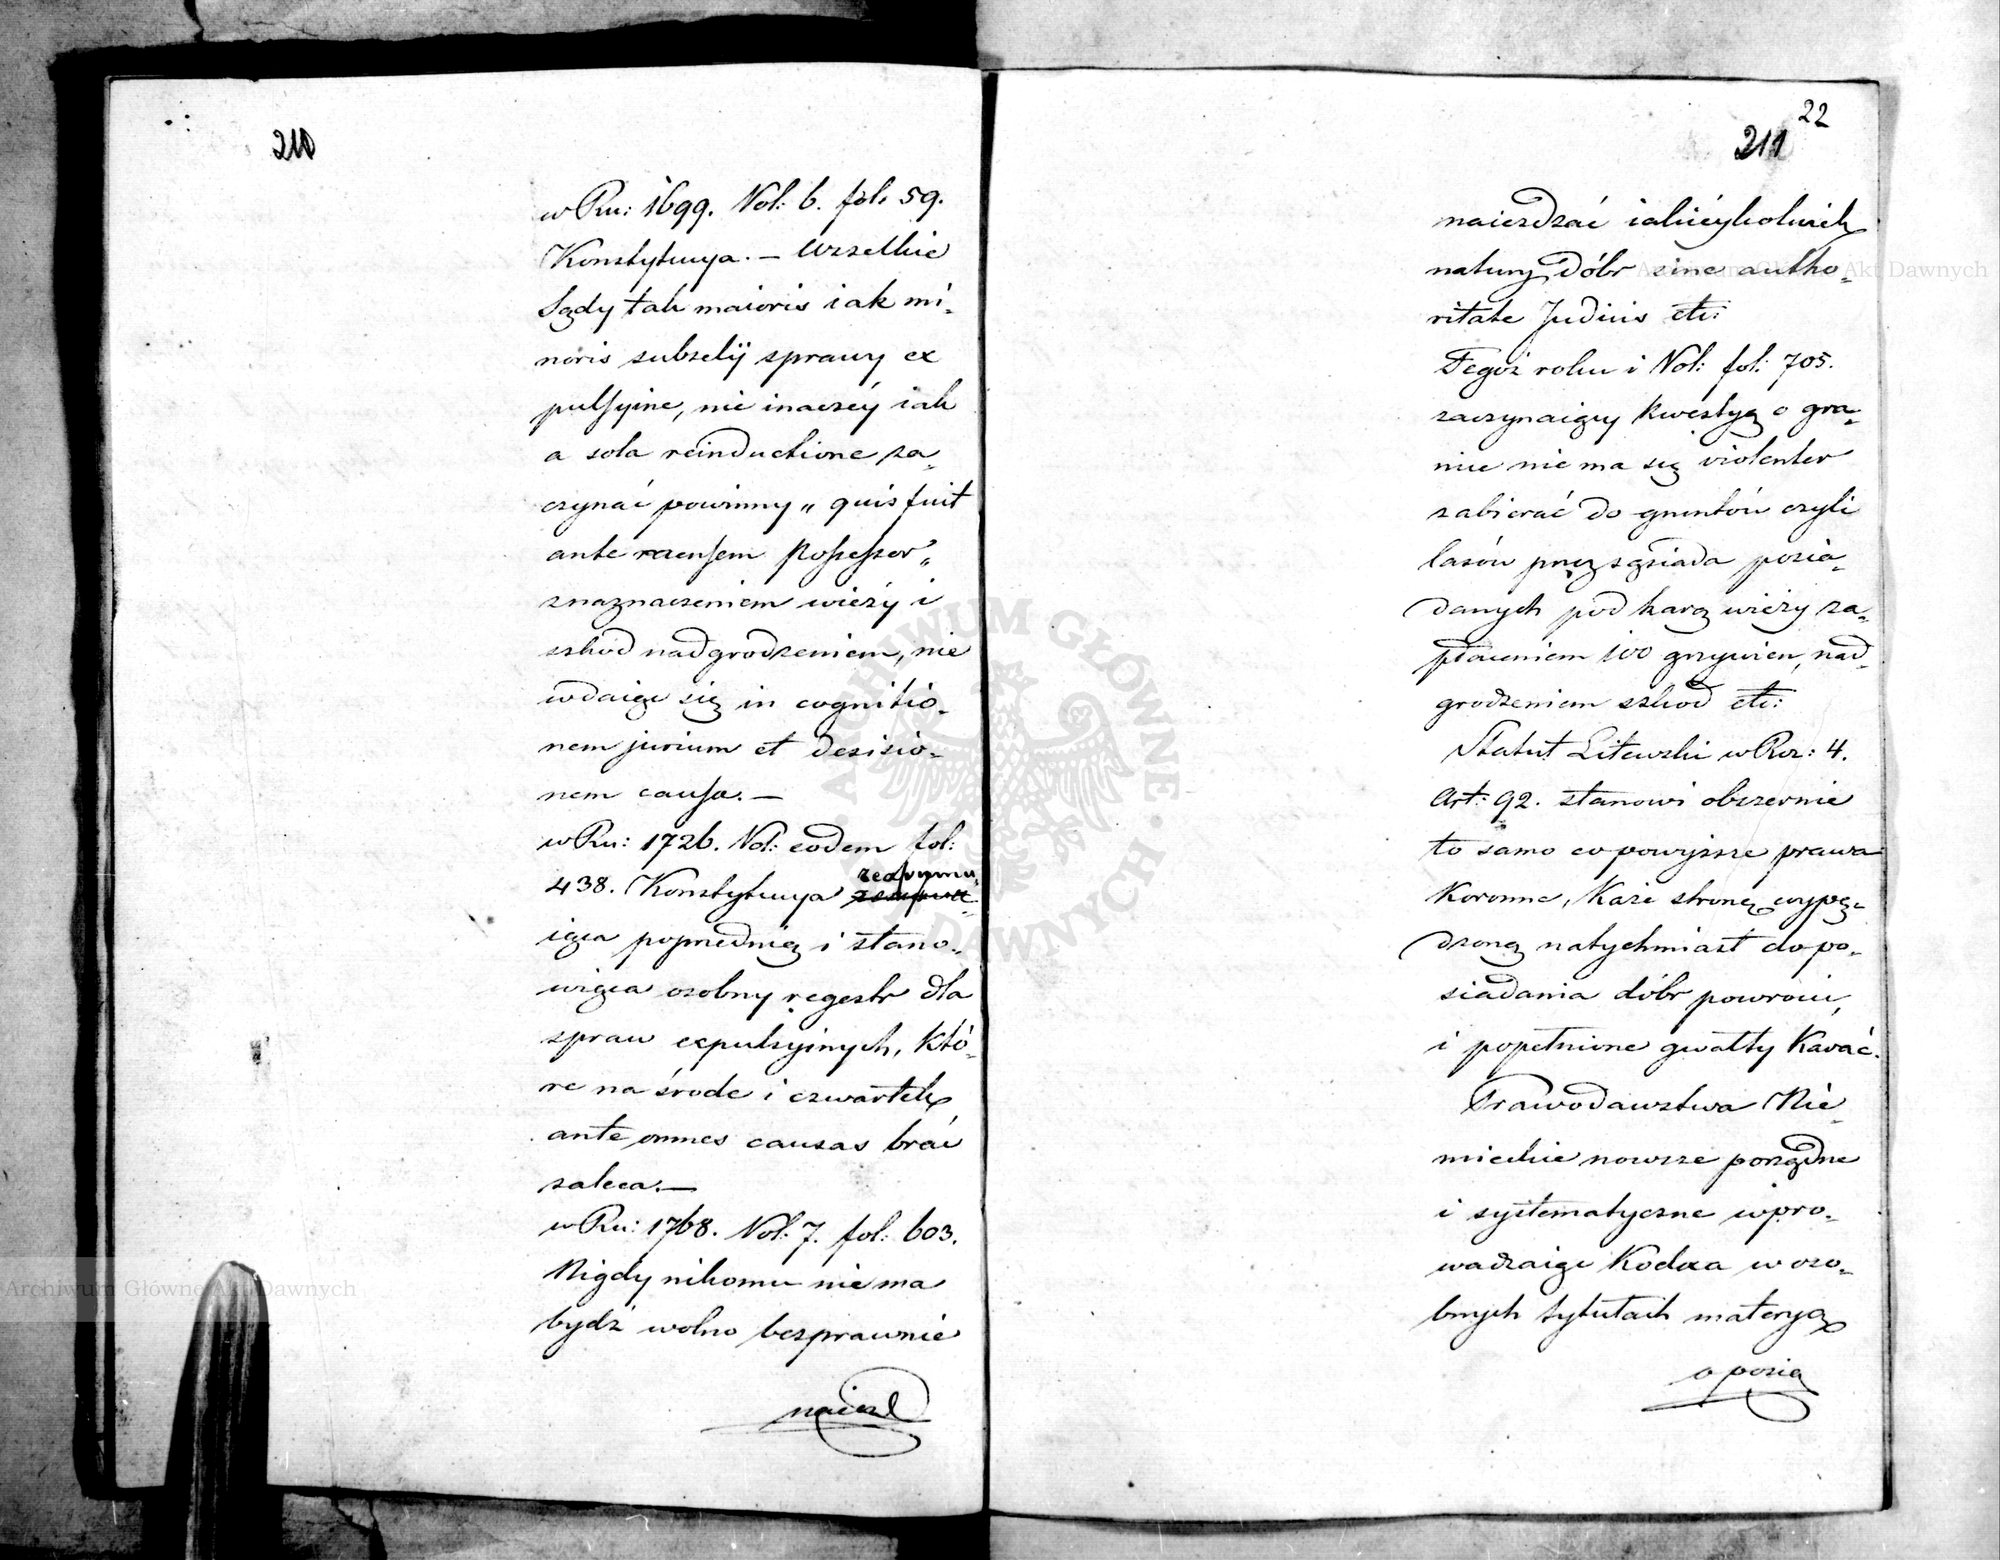 210
w Ru: 1699. Vol: 6. fol. 59.
Konstytucya. — Wszelkie
Sądy tak maioris iak mi-
noris subselij sprawy ex
pulsyine, nie inaczéy iak
a sola reinductione za-
czynać powinny „ quis fuit
ante recensem Possessor „
z naznaczeniem wieży i
szkod nadgrodzeniem, nie
wdaiąc się in cognitio-
nem jurium et decisio-
nem causa. —
w Ru: 1726. Vol: eodem fol:
438. Konstytucya reassumu-
iąca poprzednią i stano-
wiąca osobny regestr dla
spraw expulsyinych, któ-
re na środę i czwartek
ante omnes causas brać
zaleca. —
w Ru: 1768. Vol: 7. fol: 603.
Nigdy nikomu nie ma
bydź wolno bezprawnie
naiezd
22
211
naiezdzać iakiéykolwiek
natury dóbr sine autho-
ritate Judicis etc:
Tegoż roku i Vol: fol: 705.
zaczynaiący kwestyą o gra-
nice nie ma się violenter
zabierać do gruntów czyli
lasów przez sąsiada posia-
danych pod karą wieży za-
płaceniem 100 grzywien, nad-
grodzeniem szkod etc:
Statut Litewski w Roz: 4.
Art: 92. stanowi obszernie
to samo co powyższe prawa
Koronne, Każe stronę wypę-
dzoną natychmiast do po-
siadania dóbr powrócić,
i popełnione gwałty Karać.
Prawodawstwa Nie-
mieckie nowsze porządne
i systematyczne wpro-
wadzaiąc Kodexa w oso-
bnych tytułach materyą
o posia
Archiwum Główne Akt Dawnych
Archiwum Główne Akt Dawnych
ARCHIWUM GŁÓWNE AKT DAWNYCH